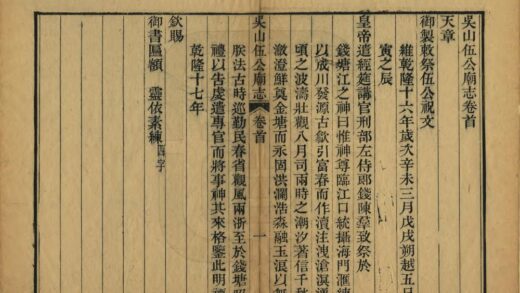 吳山伍公廟志卷首
天章
御製敕祭伍公祝文
維乾隆十六年歲次辛未三月戊戌朔越五日
寅之辰
皇帝遣經筵講官刑部左侍郎錢陳羣致祭於
錢塘江之神曰惟神尊臨江口統攝海門匯
以成川發源古歙引富春而作瀆注洩滄溟
頃之波濤壯觀八月司兩時之潮汐著信千秋
澂澄鮮奠金塘而永固洪瀾浩淼融玉浪以無
吳山伍公廟志 卷首 一
朕法古時巡勤民春省觀風兩浙至於錢塘
禮以告虔遣專官而將事神其來格鑒此明
乾隆十七年
欽賜
御書匾額 靈依素練四字